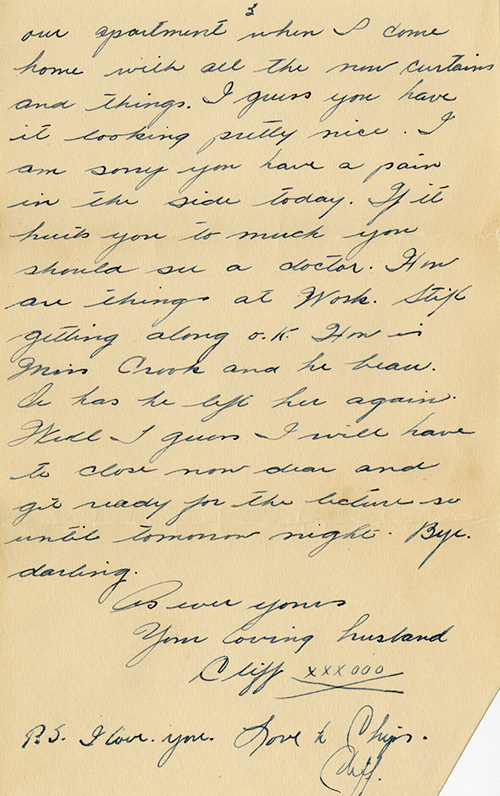 3
our apartment when I come
home with all the new curtains
and things. I guess you have
it looking pretty nice. I
am sorry you have a pain
in the side today. If it
hurts you to much you
should see a doctor. How
are things at Work. Still
getting along o.K. How is
Miss Crook and he beau.
Or has he left her again.
Well I guess I will have
to close now dear and
get ready for the lecture so
until tomorrow night. Bye.
darling.
As ever yours
Your loving husband
Cliff xxxooo
P.S. I love you. Love to Chips.
Cliff.